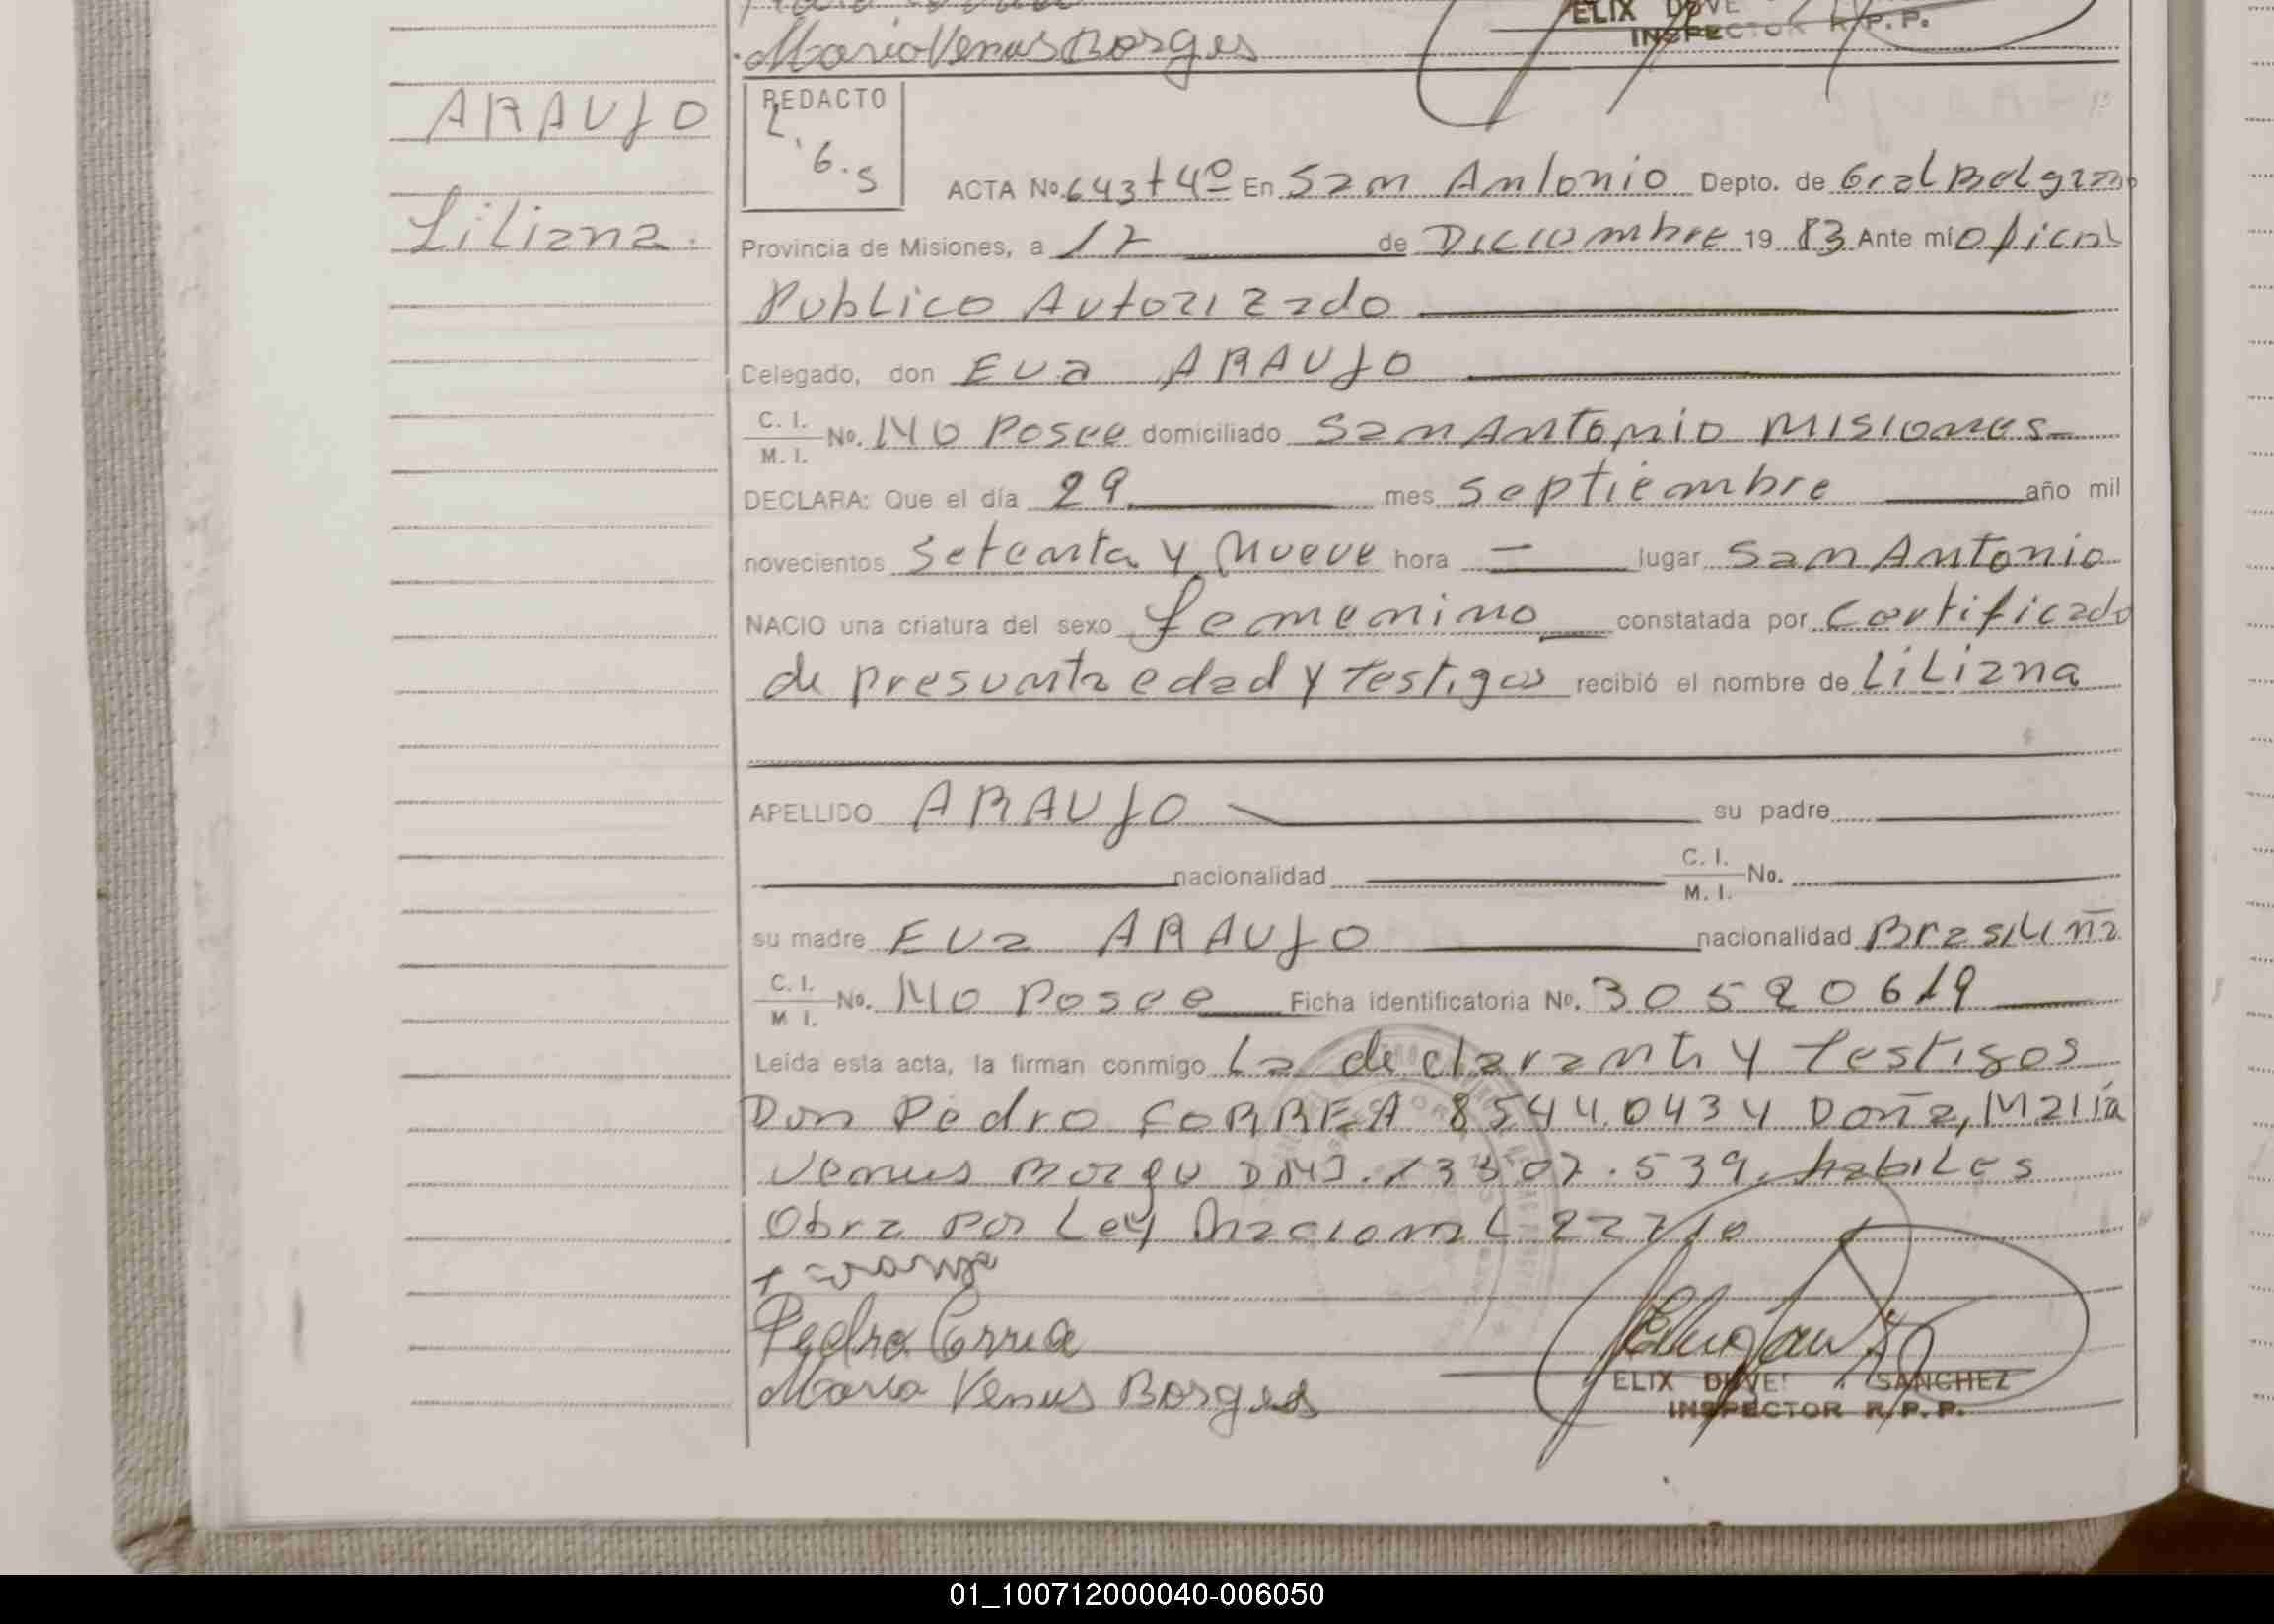 Maria Venus Borges
ELIX DUVE
INSPECTOR R.P.P.
ARAUJO
Liliana.
REDACTO
6.5
ACTA No. 643 t 4º En San Antonio Depto. de Gral Belgrano
Provincia de Misiones, a 12 de Diciembre 19 83 Ante mí Oficial
Publico Autorizado
Delegado, don Eva ARAUJO
C. I. / M. I. No. No Posee domiciliado San Antonio Misiones
DECLARA: Que el día 29 mes Septiembre año mil
novecientos Setenta y Nueve hora — lugar San Antonio
NACIO una criatura del sexo femenino constatada por Certificado
de presunta edad y testigos recibió el nombre de Liliana
APELLIDO ARAUJO su padre
nacionalidad C. I. / M. I. No.
su madre Eva ARAUJO nacionalidad Brasileña
C. I. / M I. No. No Posee Ficha identificatoria No. 30520619
Leída esta acta, la firman conmigo La declarante y testigos
Don Pedro CORREA 8544.043 y Doña, Maria
Venus Borge DNI. 13307.539, habiles
Obra por Ley Nacional 22710
Pedro Correa
Maria Venus Borges
ELIX DUVE SANCHEZ
INSPECTOR R.P.P.
01_100712000040-006050